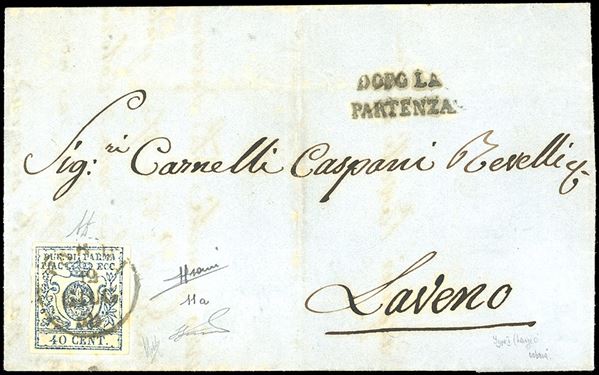 DOPO LA
PARTENZA
Sig:ri Carnelli Caspani Revelli
Laveno
DUC. DI PARMA
PIAC. ECC.
12
40 CENT.
11a